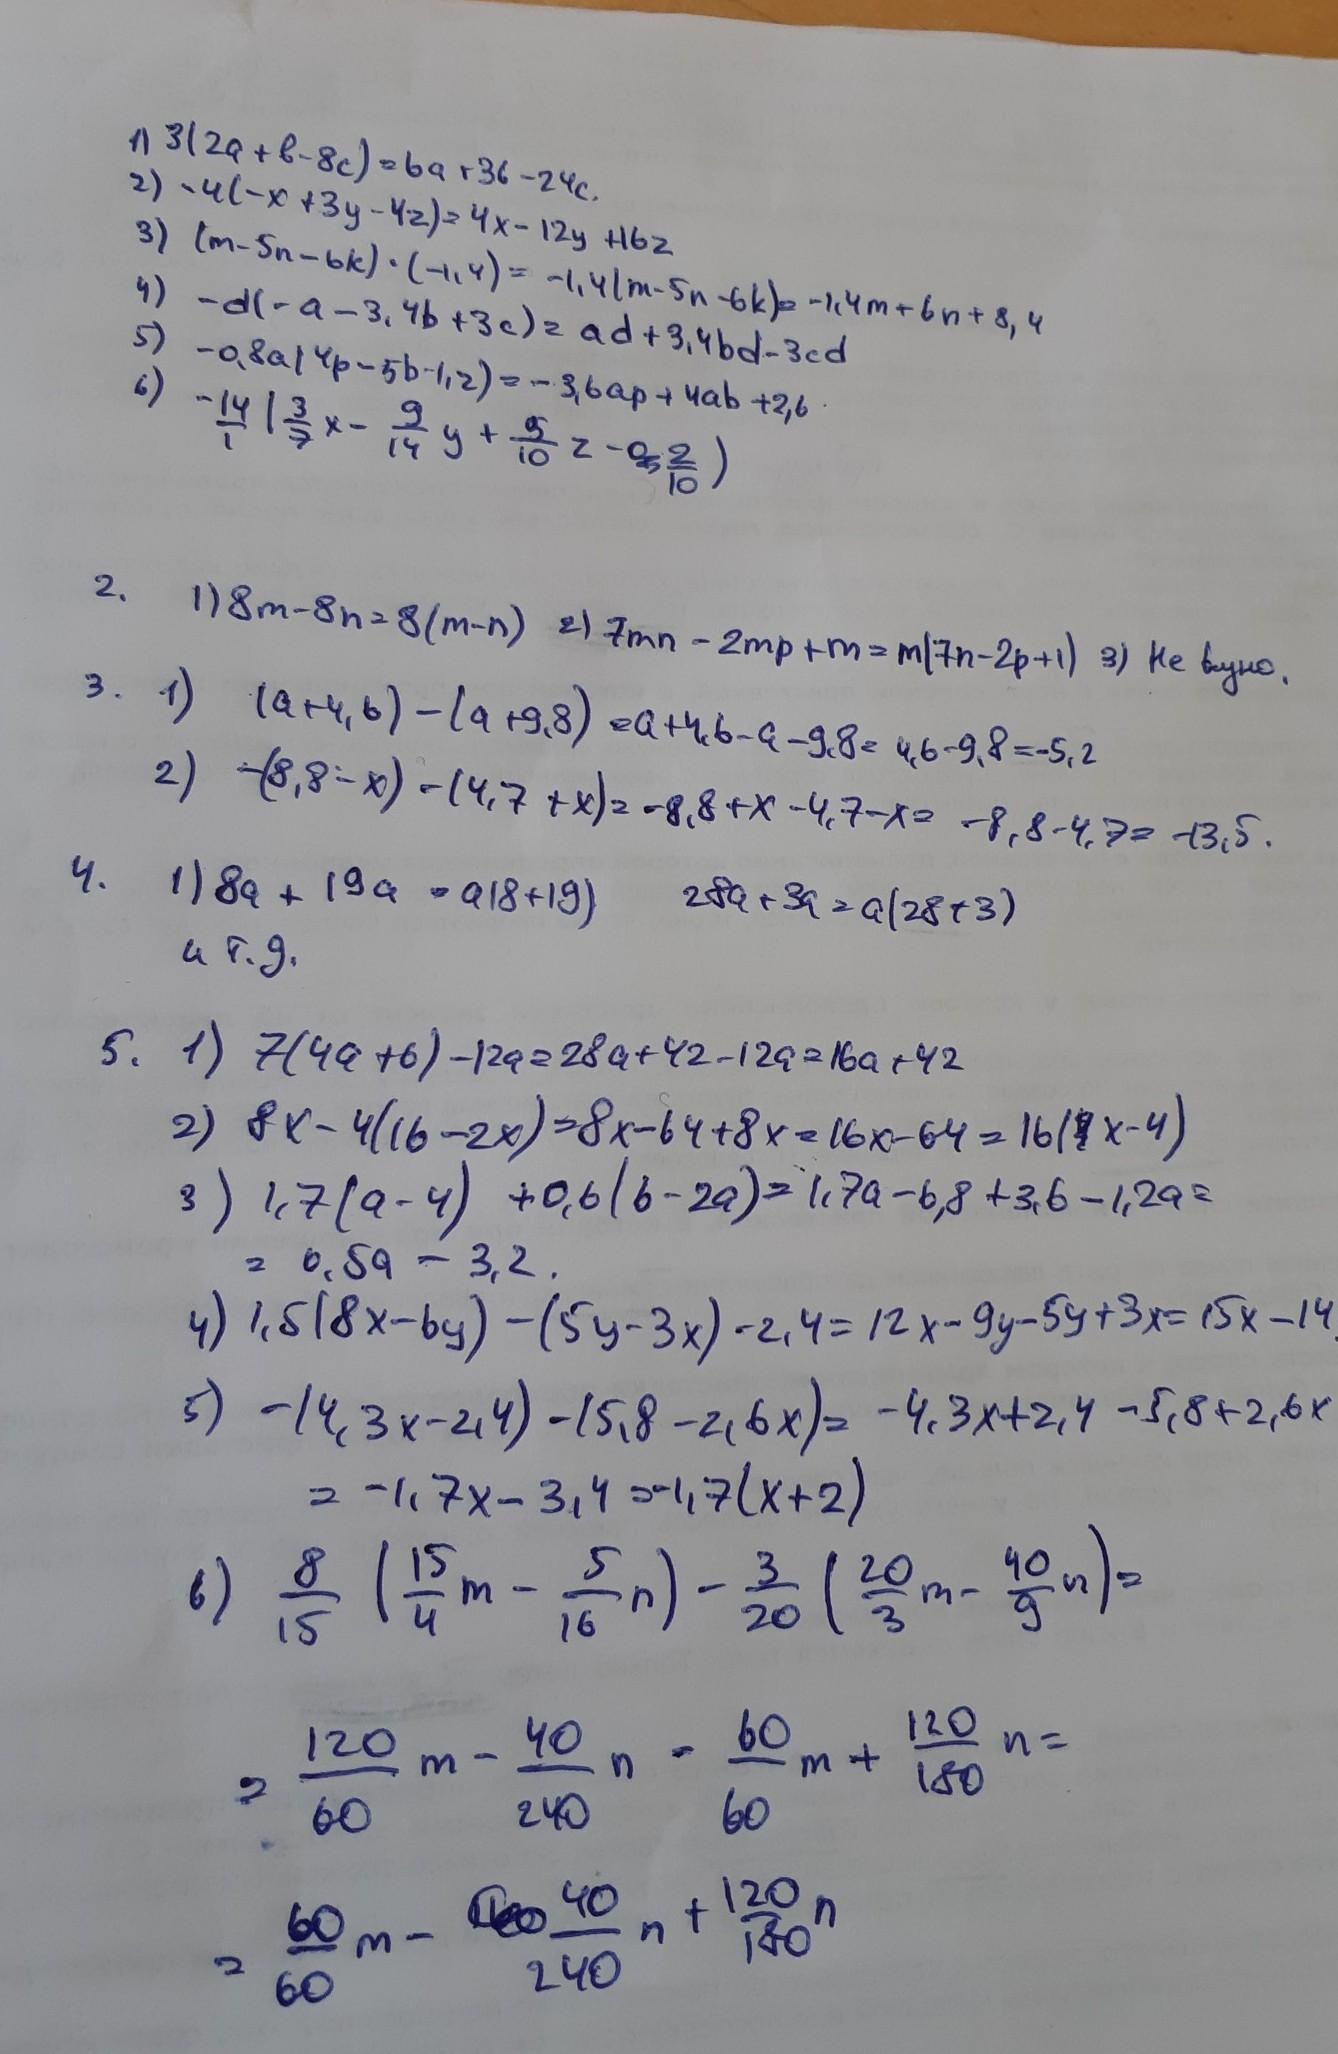 1) 3(2a + b - 8c) = 6a + 3b - 24c.
2) -4(-x + 3y - 4z) = 4x - 12y + 16z
3) (m - 5n - 6k) · (-1,4) = -1,4(m - 5n - 6k) = -1,4m + 6n + 8,4
4) -d(-a - 3,4b + 3c) = ad + 3,4bd - 3cd
5) -0,8a(4p - 5b - 1,2) = -3,6ap + 4ab + 2,6.
6) -14/1 (3/7 x - 9/14 y + 5/10 z - 2/10)
2. 1) 8m - 8n = 8(m - n) 2) 7mn - 2mp + m = m(7n - 2p + 1) 3) Не видно.
3. 1) (a + 4,6) - (a + 9,8) = a + 4,6 - a - 9,8 = 4,6 - 9,8 = -5,2
2) -(8,8 - x) - (4,7 + x) = -8,8 + x - 4,7 - x = -8,8 - 4,7 = -13,5.
4. 1) 8a + 19a = a(8 + 19) 28a + 3a = a(28 + 3)
и т.д.
5. 1) 7(4a + 6) - 12a = 28a + 42 - 12a = 16a + 42
2) 8x - 4(16 - 2x) = 8x - 64 + 8x = 16x - 64 = 16(1x - 4)
3) 1,7(a - 4) + 0,6(6 - 2a) = 1,7a - 6,8 + 3,6 - 1,2a =
= 0,5a - 3,2.
4) 1,5(8x - 6y) - (5y - 3x) - 2,4 = 12x - 9y - 5y + 3x = 15x - 14
5) -(4,3x - 2,4) - (5,8 - 2,6x) = -4,3x + 2,4 - 5,8 + 2,6x
= -1,7x - 3,4 = -1,7(x + 2)
6) 8/15 (15/4 m - 5/16 n) - 3/20 (20/3 m - 40/9 n) =
= 120/60 m - 40/240 n - 60/60 m + 120/180 n =
= 60/60 m - 40/240 n + 120/180 n